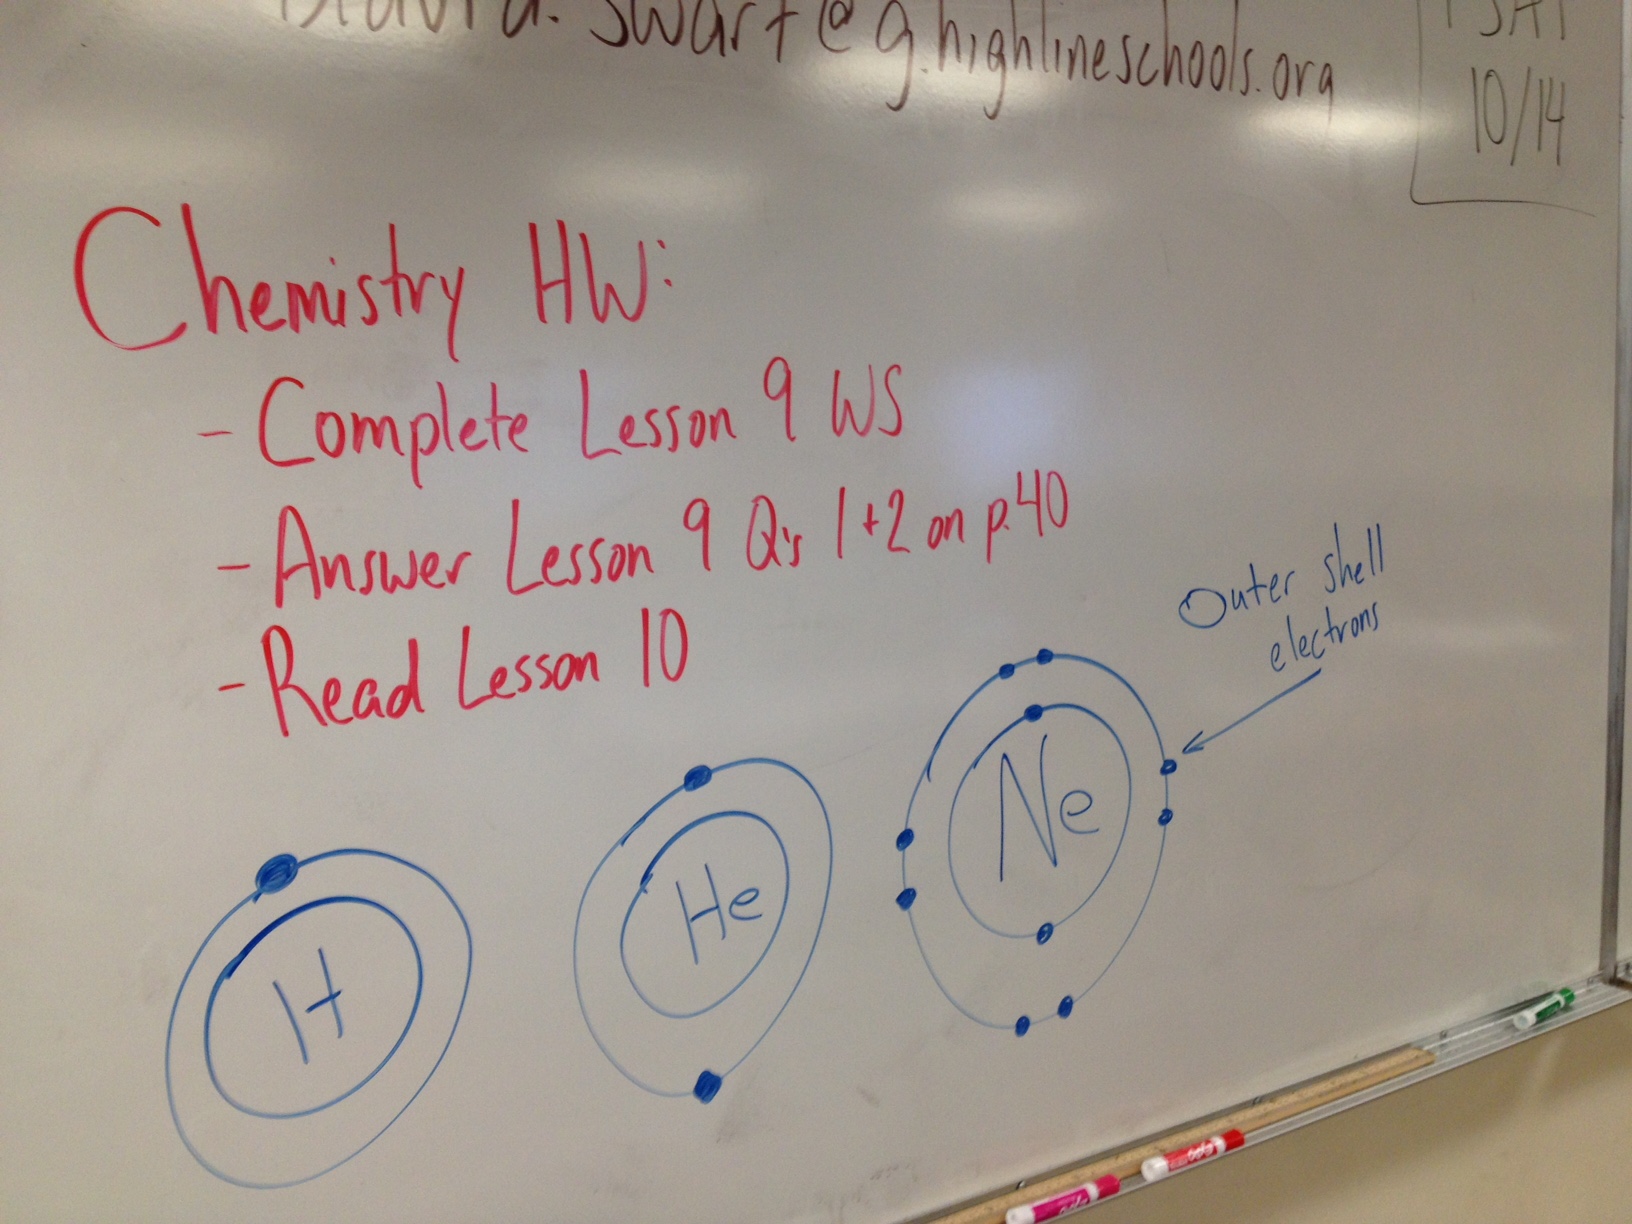 swart@g.highlineschools.org
PSAT
10/14
Chemistry HW:
- Complete Lesson 9 WS
- Answer Lesson 9 Q's 1+2 on p.40
- Read Lesson 10
Outer shell
electrons
H
He
Ne
expo
expo